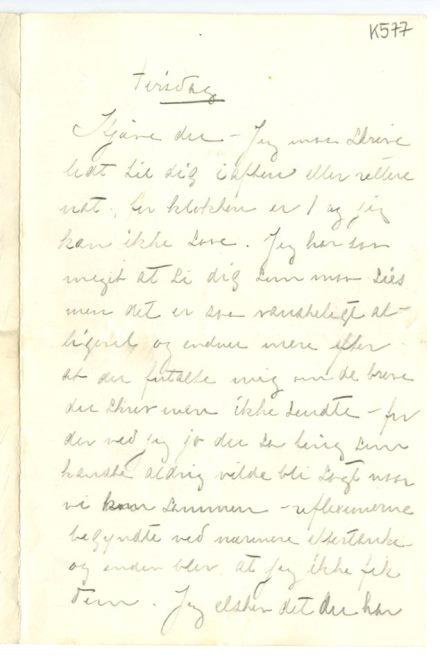 K577
Tirsdag
Kjære du – Jeg maa skrive
lidt til dig iaften eller rettere
nat, for klokken er 1 og jeg
kan ikke sove. Jeg har saa
meget at si dig som maa sies
men det er saa vanskeligt al-
ligevel og endnu mere efter
at du fortalte mig om de breve
du skrev men ikke sendte – for
der ved jeg jo du sa ting som
kanske aldrig vilde bli sagt naar
vi kom sammen – refleximerne
begyndte ved nærmere eftertanke
og enden blev at jeg ikke fik
dem. Jeg elsker det du har